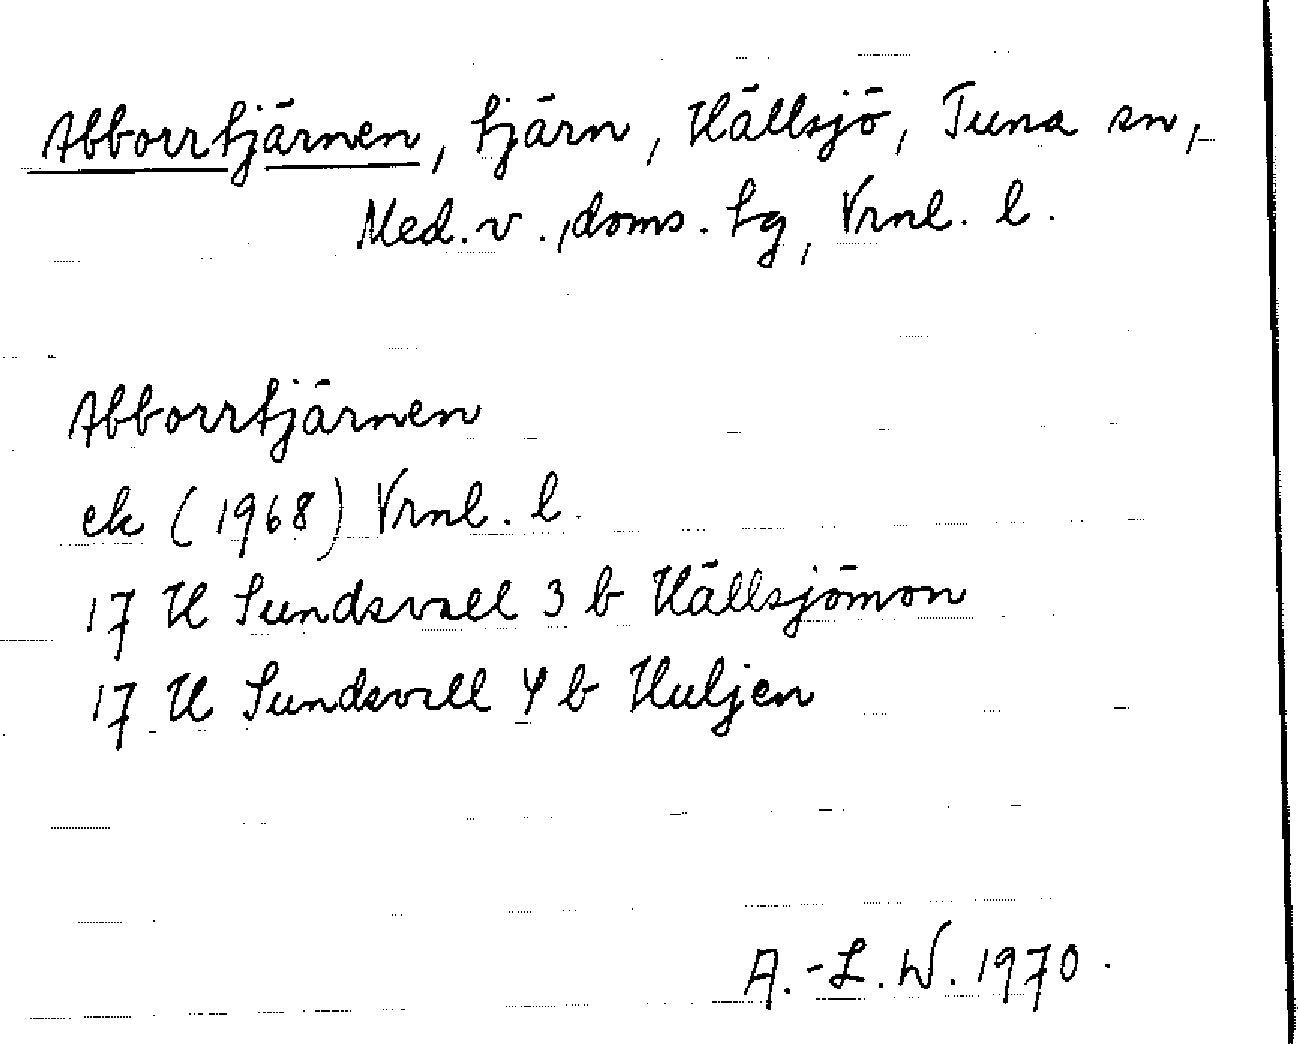 Abborrtjärnen, tjärn, Hällsjö, Tuna sn,
Med. v., doms. tg, Vrnl. l.
Abborrtjärnen
ek (1968) Vrnl. l.
17 H Sundsvall 3 b Hällsjömon
17 H Sundsvall 4 b Huljen
A.-L. W. 1970.